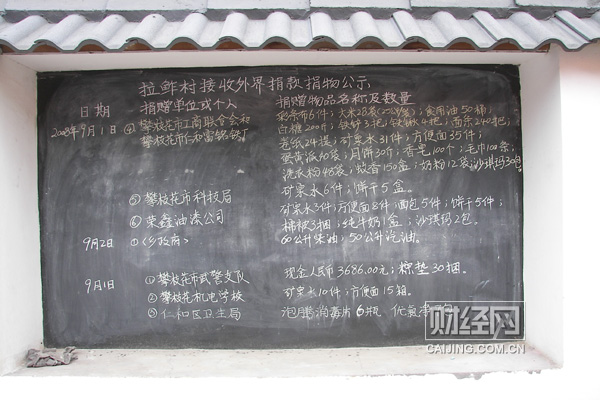 拉鲊村接收外界捐款捐物公示
日期 捐赠单位或个人 捐赠物品名称及数量
2008年9月1日 ④攀枝花市工商联合会和 彩条布6件；大米28袋；食用油50桶；
攀枝花市仁和富铭铁厂 白糖200斤；铁钞3把；
卷纸24提；矿泉水31件；方便面35件；
蛋黄派60袋；月饼30斤；香皂100个；毛巾100条；
洗衣粉48袋；蚊香150盒；奶粉12袋；沙琪玛30包
矿泉水6件；饼干5盒。
⑤攀枝花市科技局 矿泉水3件；方便面8件；面包5件；饼干5件；
⑥荣鑫油漆公司 棉被3捆；纯牛奶1盒；沙琪玛2包。
9月2日 ①(乡政府) 60公升柴油；50公升汽油。
9月1日 ①攀枝花市武警支队 现金人民币3686.00元；棉垫30捆。
②攀枝花机电学校 矿泉水10件；方便面15箱。
③仁和区卫生局 泡腾消毒片6瓶
财经网
CAIJING.COM.CN